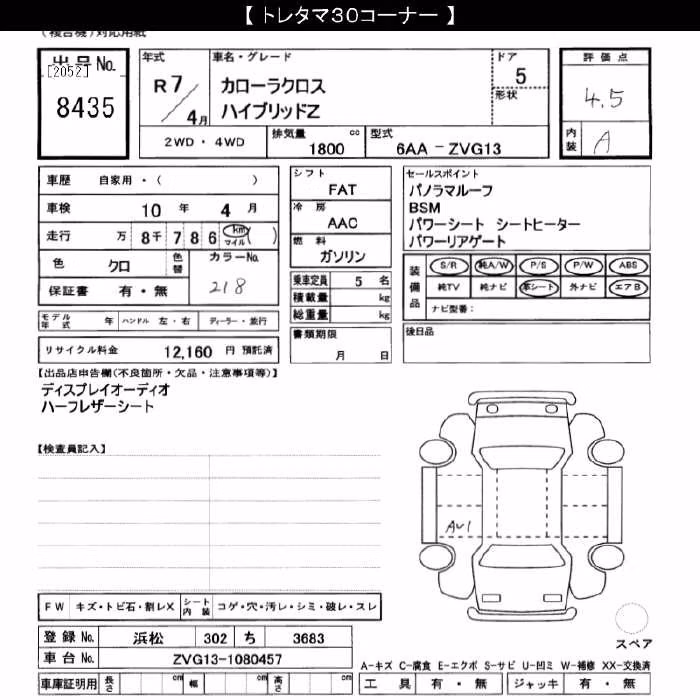 【 トレタマ30コーナー 】
(複合機)対応用紙
出品No.
[2052]
8435
年式
R7/4月
車名・グレード
カローラクロス
ハイブリッドZ
ドア
5
形状
2WD・4WD
排気量 1800 cc
型式 6AA－ZVG13
評価点
4.5
内装 A
車歴 自家用・( )
車検 10 年 4 月
走行 万 8千 7 8 6 km マイル ( )
色 クロ
色替
カラーNo.
218
保証書 有・無
シフト
FAT
冷房
AAC
燃料
ガソリン
セールスポイント
パノラマルーフ
BSM
パワーシート シートヒーター
パワーリアゲート
装備品
S/R 純A/W P/S P/W ABS
純TV 純ナビ 革シート 外ナビ エアB
ナビ型番:
乗車定員 5 名
積載量 kg
総重量 kg
モデル年式 年 ハンドル 左・右 ディーラー・並行
リサイクル料金 12,160 円 預託済
書類期限
月 日
後日品
【出品店申告欄(不良箇所・欠品・注意事項等)】
ディスプレイオーディオ
ハーフレザーシート
【検査員記入】
AU1
FW キズ・トビ石・割レX
シート内装 コゲ・穴・汚レ・シミ・破レ・スレ
スペア
登録No. 浜松 302 ち 3683
車台No. ZVG13-1080457
A-キズ C-腐食 E-エクボ S-サビ U-凹ミ W-補修 XX-交換済
車庫証明用 長さ cm 幅 cm 高さ cm
工具 有・無 ジャッキ 有・無